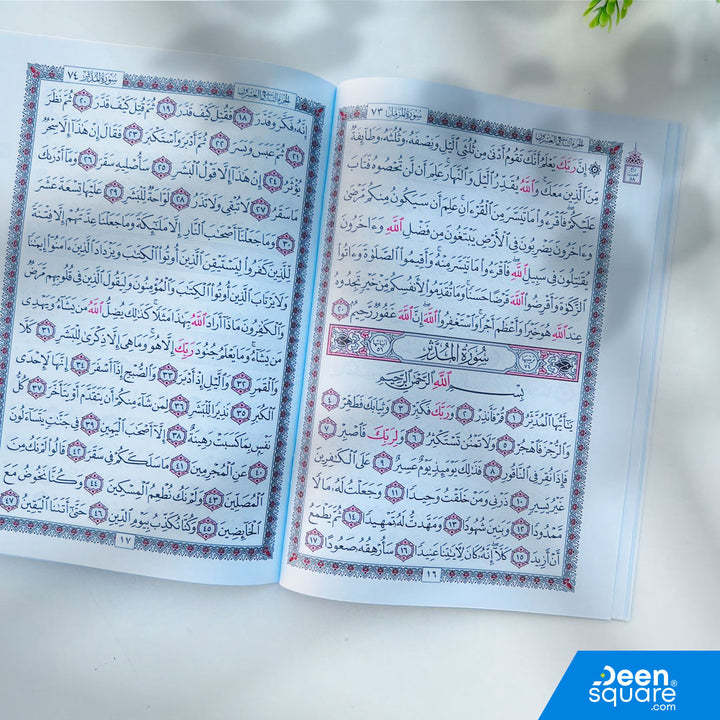 سُورَةُ المُزَّمِّل ٧٣
الجزء التاسع والعشرون
۞ إِنَّ رَبَّكَ يَعْلَمُ أَنَّكَ تَقُومُ أَدْنَىٰ مِن ثُلُثَيِ ٱلَّيْلِ وَنِصْفَهُۥ وَثُلُثَهُۥ وَطَآئِفَةٌ
مِّنَ ٱلَّذِينَ مَعَكَ وَٱللَّهُ يُقَدِّرُ ٱلَّيْلَ وَٱلنَّهَارَ عَلِمَ أَن لَّن تُحْصُوهُ فَتَابَ
عَلَيْكُمْ فَٱقْرَءُوا۟ مَا تَيَسَّرَ مِنَ ٱلْقُرْءَانِ عَلِمَ أَن سَيَكُونُ مِنكُم مَّرْضَىٰ
وَءَاخَرُونَ يَضْرِبُونَ فِى ٱلْأَرْضِ يَبْتَغُونَ مِن فَضْلِ ٱللَّهِ وَءَاخَرُونَ
يُقَـٰتِلُونَ فِى سَبِيلِ ٱللَّهِ فَٱقْرَءُوا۟ مَا تَيَسَّرَ مِنْهُ وَأَقِيمُوا۟ ٱلصَّلَوٰةَ وَءَاتُوا۟
ٱلزَّكَوٰةَ وَأَقْرِضُوا۟ ٱللَّهَ قَرْضًا حَسَنًا وَمَا تُقَدِّمُوا۟ لِأَنفُسِكُم مِّنْ خَيْرٍ تَجِدُوهُ
عِندَ ٱللَّهِ هُوَ خَيْرًا وَأَعْظَمَ أَجْرًا وَٱسْتَغْفِرُوا۟ ٱللَّهَ إِنَّ ٱللَّهَ غَفُورٌ رَّحِيمٌ ٢٠
سُورَةُ المُدَّثِّر
بِسْمِ ٱللَّهِ ٱلرَّحْمَـٰنِ ٱلرَّحِيمِ
يَـٰٓأَيُّهَا ٱلْمُدَّثِّرُ ١ قُمْ فَأَنذِرْ ٢ وَرَبَّكَ فَكَبِّرْ ٣ وَثِيَابَكَ فَطَهِّرْ ٤
وَٱلرُّجْزَ فَٱهْجُرْ ٥ وَلَا تَمْنُن تَسْتَكْثِرُ ٦ وَلِرَبِّكَ فَٱصْبِرْ ٧
فَإِذَا نُقِرَ فِى ٱلنَّاقُورِ ٨ فَذَٰلِكَ يَوْمَئِذٍ يَوْمٌ عَسِيرٌ ٩ عَلَى ٱلْكَـٰفِرِينَ
غَيْرُ يَسِيرٍ ١٠ ذَرْنِى وَمَنْ خَلَقْتُ وَحِيدًا ١١ وَجَعَلْتُ لَهُۥ مَالًا
مَّمْدُودًا ١٢ وَبَنِينَ شُهُودًا ١٣ وَمَهَّدتُّ لَهُۥ تَمْهِيدًا ١٤ ثُمَّ يَطْمَعُ
أَنْ أَزِيدَ ١٥ كَلَّآ إِنَّهُۥ كَانَ لِـَٔايَـٰتِنَا عَنِيدًا ١٦ سَأُرْهِقُهُۥ صَعُودًا ١٧
١٦
الجزء التاسع والعشرون
سُورَةُ المُدَّثِّر ٧٤
إِنَّهُۥ فَكَّرَ وَقَدَّرَ ١٨ فَقُتِلَ كَيْفَ قَدَّرَ ١٩ ثُمَّ قُتِلَ كَيْفَ قَدَّرَ ٢٠ ثُمَّ نَظَرَ
٢١ ثُمَّ عَبَسَ وَبَسَرَ ٢٢ ثُمَّ أَدْبَرَ وَٱسْتَكْبَرَ ٢٣ فَقَالَ إِنْ هَـٰذَآ إِلَّا سِحْرٌ
يُؤْثَرُ ٢٤ إِنْ هَـٰذَآ إِلَّا قَوْلُ ٱلْبَشَرِ ٢٥ سَأُصْلِيهِ سَقَرَ ٢٦ وَمَآ أَدْرَىٰكَ
مَا سَقَرُ ٢٧ لَا تُبْقِى وَلَا تَذَرُ ٢٨ لَوَّاحَةٌ لِّلْبَشَرِ ٢٩ عَلَيْهَا تِسْعَةَ عَشَرَ
٣٠ وَمَا جَعَلْنَآ أَصْحَـٰبَ ٱلنَّارِ إِلَّا مَلَـٰٓئِكَةً وَمَا جَعَلْنَا عِدَّتَهُمْ إِلَّا فِتْنَةً
لِّلَّذِينَ كَفَرُوا۟ لِيَسْتَيْقِنَ ٱلَّذِينَ أُوتُوا۟ ٱلْكِتَـٰبَ وَيَزْدَادَ ٱلَّذِينَ ءَامَنُوٓا۟ إِيمَـٰنًا
وَلَا يَرْتَابَ ٱلَّذِينَ أُوتُوا۟ ٱلْكِتَـٰبَ وَٱلْمُؤْمِنُونَ وَلِيَقُولَ ٱلَّذِينَ فِى قُلُوبِهِم مَّرَضٌ
وَٱلْكَـٰفِرُونَ مَاذَآ أَرَادَ ٱللَّهُ بِهَـٰذَا مَثَلًا كَذَٰلِكَ يُضِلُّ ٱللَّهُ مَن يَشَآءُ وَيَهْدِى
مَن يَشَآءُ وَمَا يَعْلَمُ جُنُودَ رَبِّكَ إِلَّا هُوَ وَمَا هِىَ إِلَّا ذِكْرَىٰ لِلْبَشَرِ ٣١ كَلَّا
وَٱلْقَمَرِ ٣٢ وَٱلَّيْلِ إِذْ أَدْبَرَ ٣٣ وَٱلصُّبْحِ إِذَآ أَسْفَرَ ٣٤ إِنَّهَا لَإِحْدَى
ٱلْكُبَرِ ٣٥ نَذِيرًا لِّلْبَشَرِ ٣٦ لِمَن شَآءَ مِنكُمْ أَن يَتَقَدَّمَ أَوْ يَتَأَخَّرَ ٣٧ كُلُّ
نَفْسٍۭ بِمَا كَسَبَتْ رَهِينَةٌ ٣٨ إِلَّآ أَصْحَـٰبَ ٱلْيَمِينِ ٣٩ فِى جَنَّـٰتٍ يَتَسَآءَلُونَ
٤٠ عَنِ ٱلْمُجْرِمِينَ ٤١ مَا سَلَكَكُمْ فِى سَقَرَ ٤٢ قَالُوا۟ لَمْ نَكُ مِنَ
ٱلْمُصَلِّينَ ٤٣ وَلَمْ نَكُ نُطْعِمُ ٱلْمِسْكِينَ ٤٤ وَكُنَّا نَخُوضُ مَعَ
ٱلْخَآئِضِينَ ٤٥ وَكُنَّا نُكَذِّبُ بِيَوْمِ ٱلدِّينِ ٤٦ حَتَّىٰٓ أَتَىٰنَا ٱلْيَقِينُ ٤٧
١٧
Deen
square®
.com